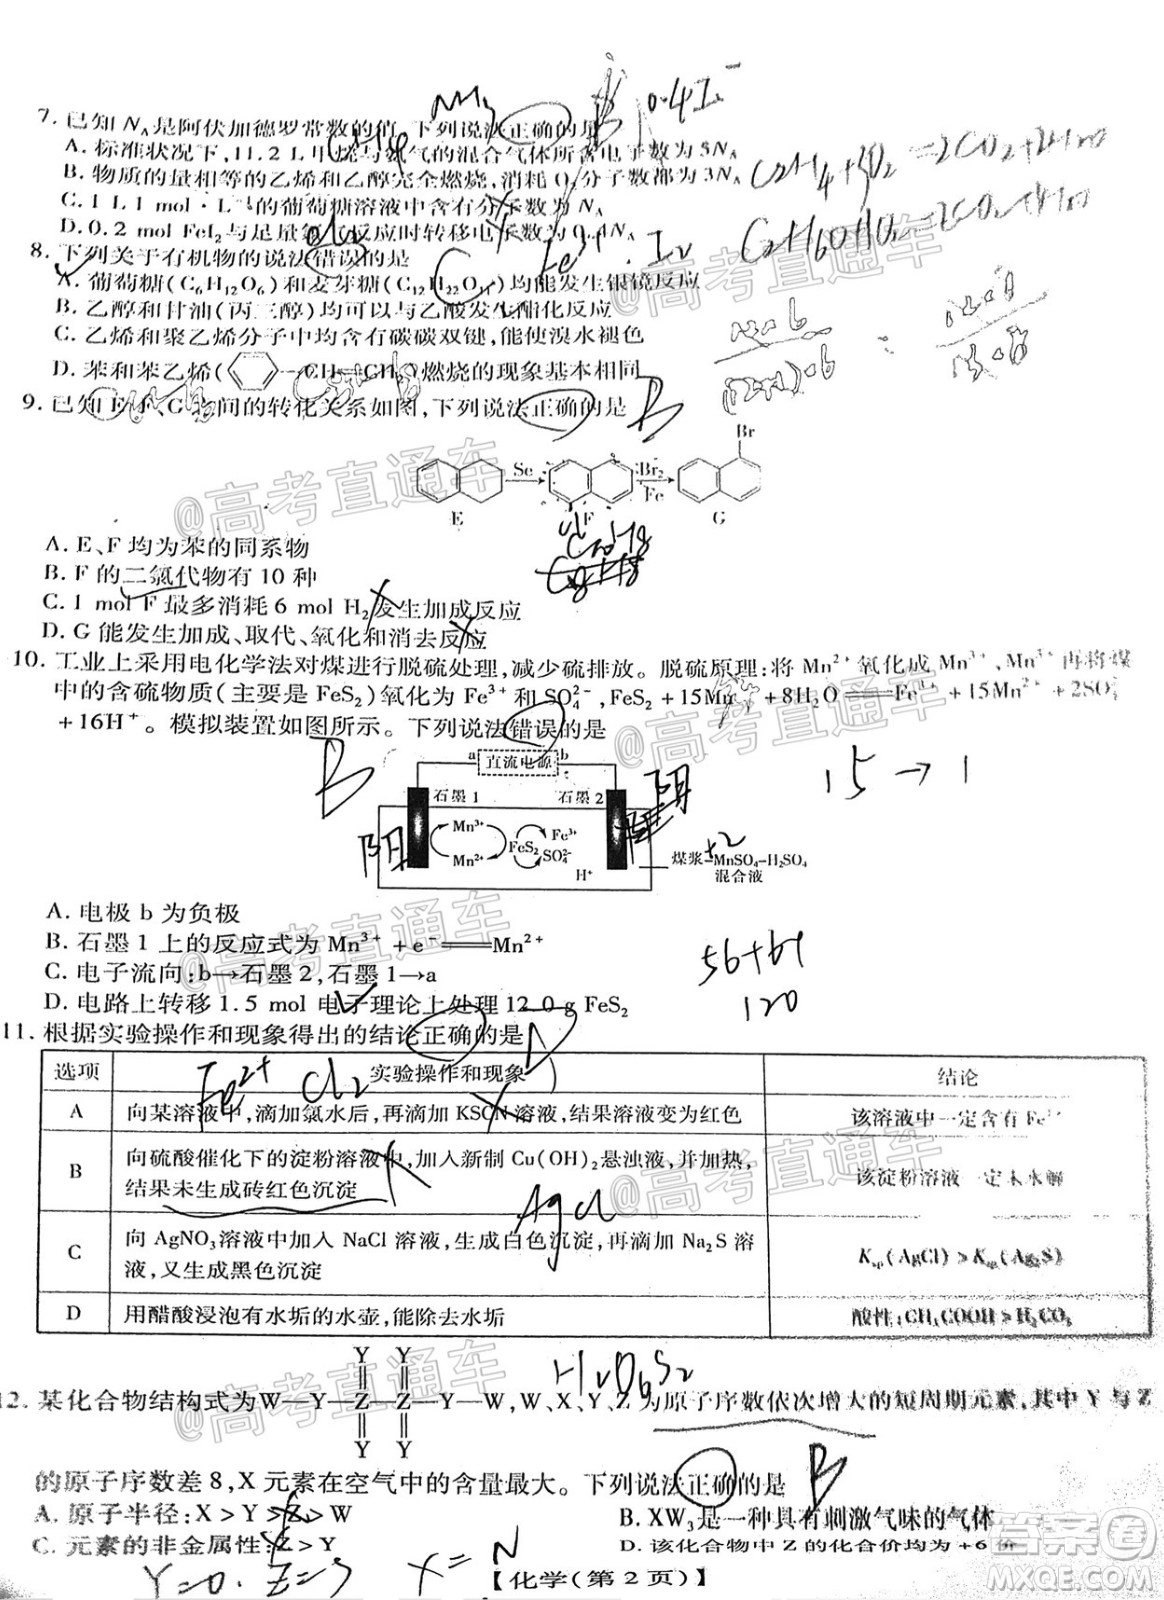 7. 已知 N_A 是阿伏加德罗常数的值,下列说法正确的是
A. 标准状况下,11.2 L 甲烷与氨气的混合气体所含电子数为 5N_A
B. 物质的量相等的乙烯和乙醇完全燃烧,消耗 O₂ 分子数都为 3N_A
C. 1 L 1 mol·L⁻¹ 的葡萄糖溶液中含有分子数为 N_A
D. 0.2 mol FeI₂ 与足量氯气反应时转移电子数为 0.4N_A
8. 下列关于有机物的说法错误的是
A. 葡萄糖(C₆H₁₂O₆)和麦芽糖(C₁₂H₂₂O₁₁)均能发生银镜反应
B. 乙醇和甘油(丙三醇)均可以与乙酸发生酯化反应
C. 乙烯和聚乙烯分子中均含有碳碳双键,能使溴水褪色
D. 苯和苯乙烯(—CH═CH₂)燃烧的现象基本相同
9. 已知 E、F、G 之间的转化关系如图,下列说法正确的是
Br
Se Br₂ Fe
E F G
A. E、F 均为苯的同系物
B. F 的二氯代物有 10 种
C. 1 mol F 最多消耗 6 mol H₂ 发生加成反应
D. G 能发生加成、取代、氧化和消去反应
10. 工业上采用电化学法对煤进行脱硫处理,减少硫排放。脱硫原理:将 Mn²⁺ 氧化成 Mn³⁺,Mn³⁺ 再将煤
中的含硫物质(主要是 FeS₂)氧化为 Fe³⁺ 和 SO₄²⁻,FeS₂+15Mn³⁺+8H₂O═══Fe³⁺+15Mn²⁺+2SO₄²⁻
+16H⁺。模拟装置如图所示。下列说法错误的是
a 直流电源 b
石墨 1 石墨 2
Mn³⁺ Fe³⁺
Mn²⁺ FeS₂ SO₄²⁻
H⁺
煤浆-MnSO₄-H₂SO₄
混合液
A. 电极 b 为负极
B. 石墨 1 上的反应式为 Mn³⁺+e⁻═══Mn²⁺
C. 电子流向:b→石墨 2,石墨 1→a
D. 电路上转移 1.5 mol 电子理论上处理 12.0 g FeS₂
11. 根据实验操作和现象得出的结论正确的是
选项 实验操作和现象 结论
A 向某溶液中,滴加氯水后,再滴加 KSCN 溶液,结果溶液变为红色 该溶液中一定含有 Fe²⁺
B 向硫酸催化下的淀粉溶液中,加入新制 Cu(OH)₂ 悬浊液,并加热,
结果未生成砖红色沉淀 该淀粉溶液一定未水解
C 向 AgNO₃ 溶液中加入 NaCl 溶液,生成白色沉淀,再滴加 Na₂S 溶
液,又生成黑色沉淀 Ksp(AgCl)>Ksp(Ag₂S)
D 用醋酸浸泡有水垢的水壶,能除去水垢 酸性:CH₃COOH>H₂CO₃
Y Y
12. 某化合物结构式为 W—Y—Z—Z—Y—W,W、X、Y、Z 为原子序数依次增大的短周期元素,其中 Y 与 Z
Y Y
的原子序数差 8,X 元素在空气中的含量最大。下列说法正确的是
A. 原子半径:X>Y>Z>W B. XW₃ 是一种具有刺激气味的气体
C. 元素的非金属性:Z>Y D. 该化合物中 Z 的化合价均为+6 价
【化学(第 2 页)】
NH₃
B
0.4I⁻
Fe³⁺ I₂
C
B
B
阳
阴
+2
15→1
56+64
120
D
Fe²⁺ Cl₂
AgCl
B
X=N
@高考直通车
@高考直通车
@高考直通车
@高考直通车
@高考直通车
@高考直通车
答案圈
MXQE.COM